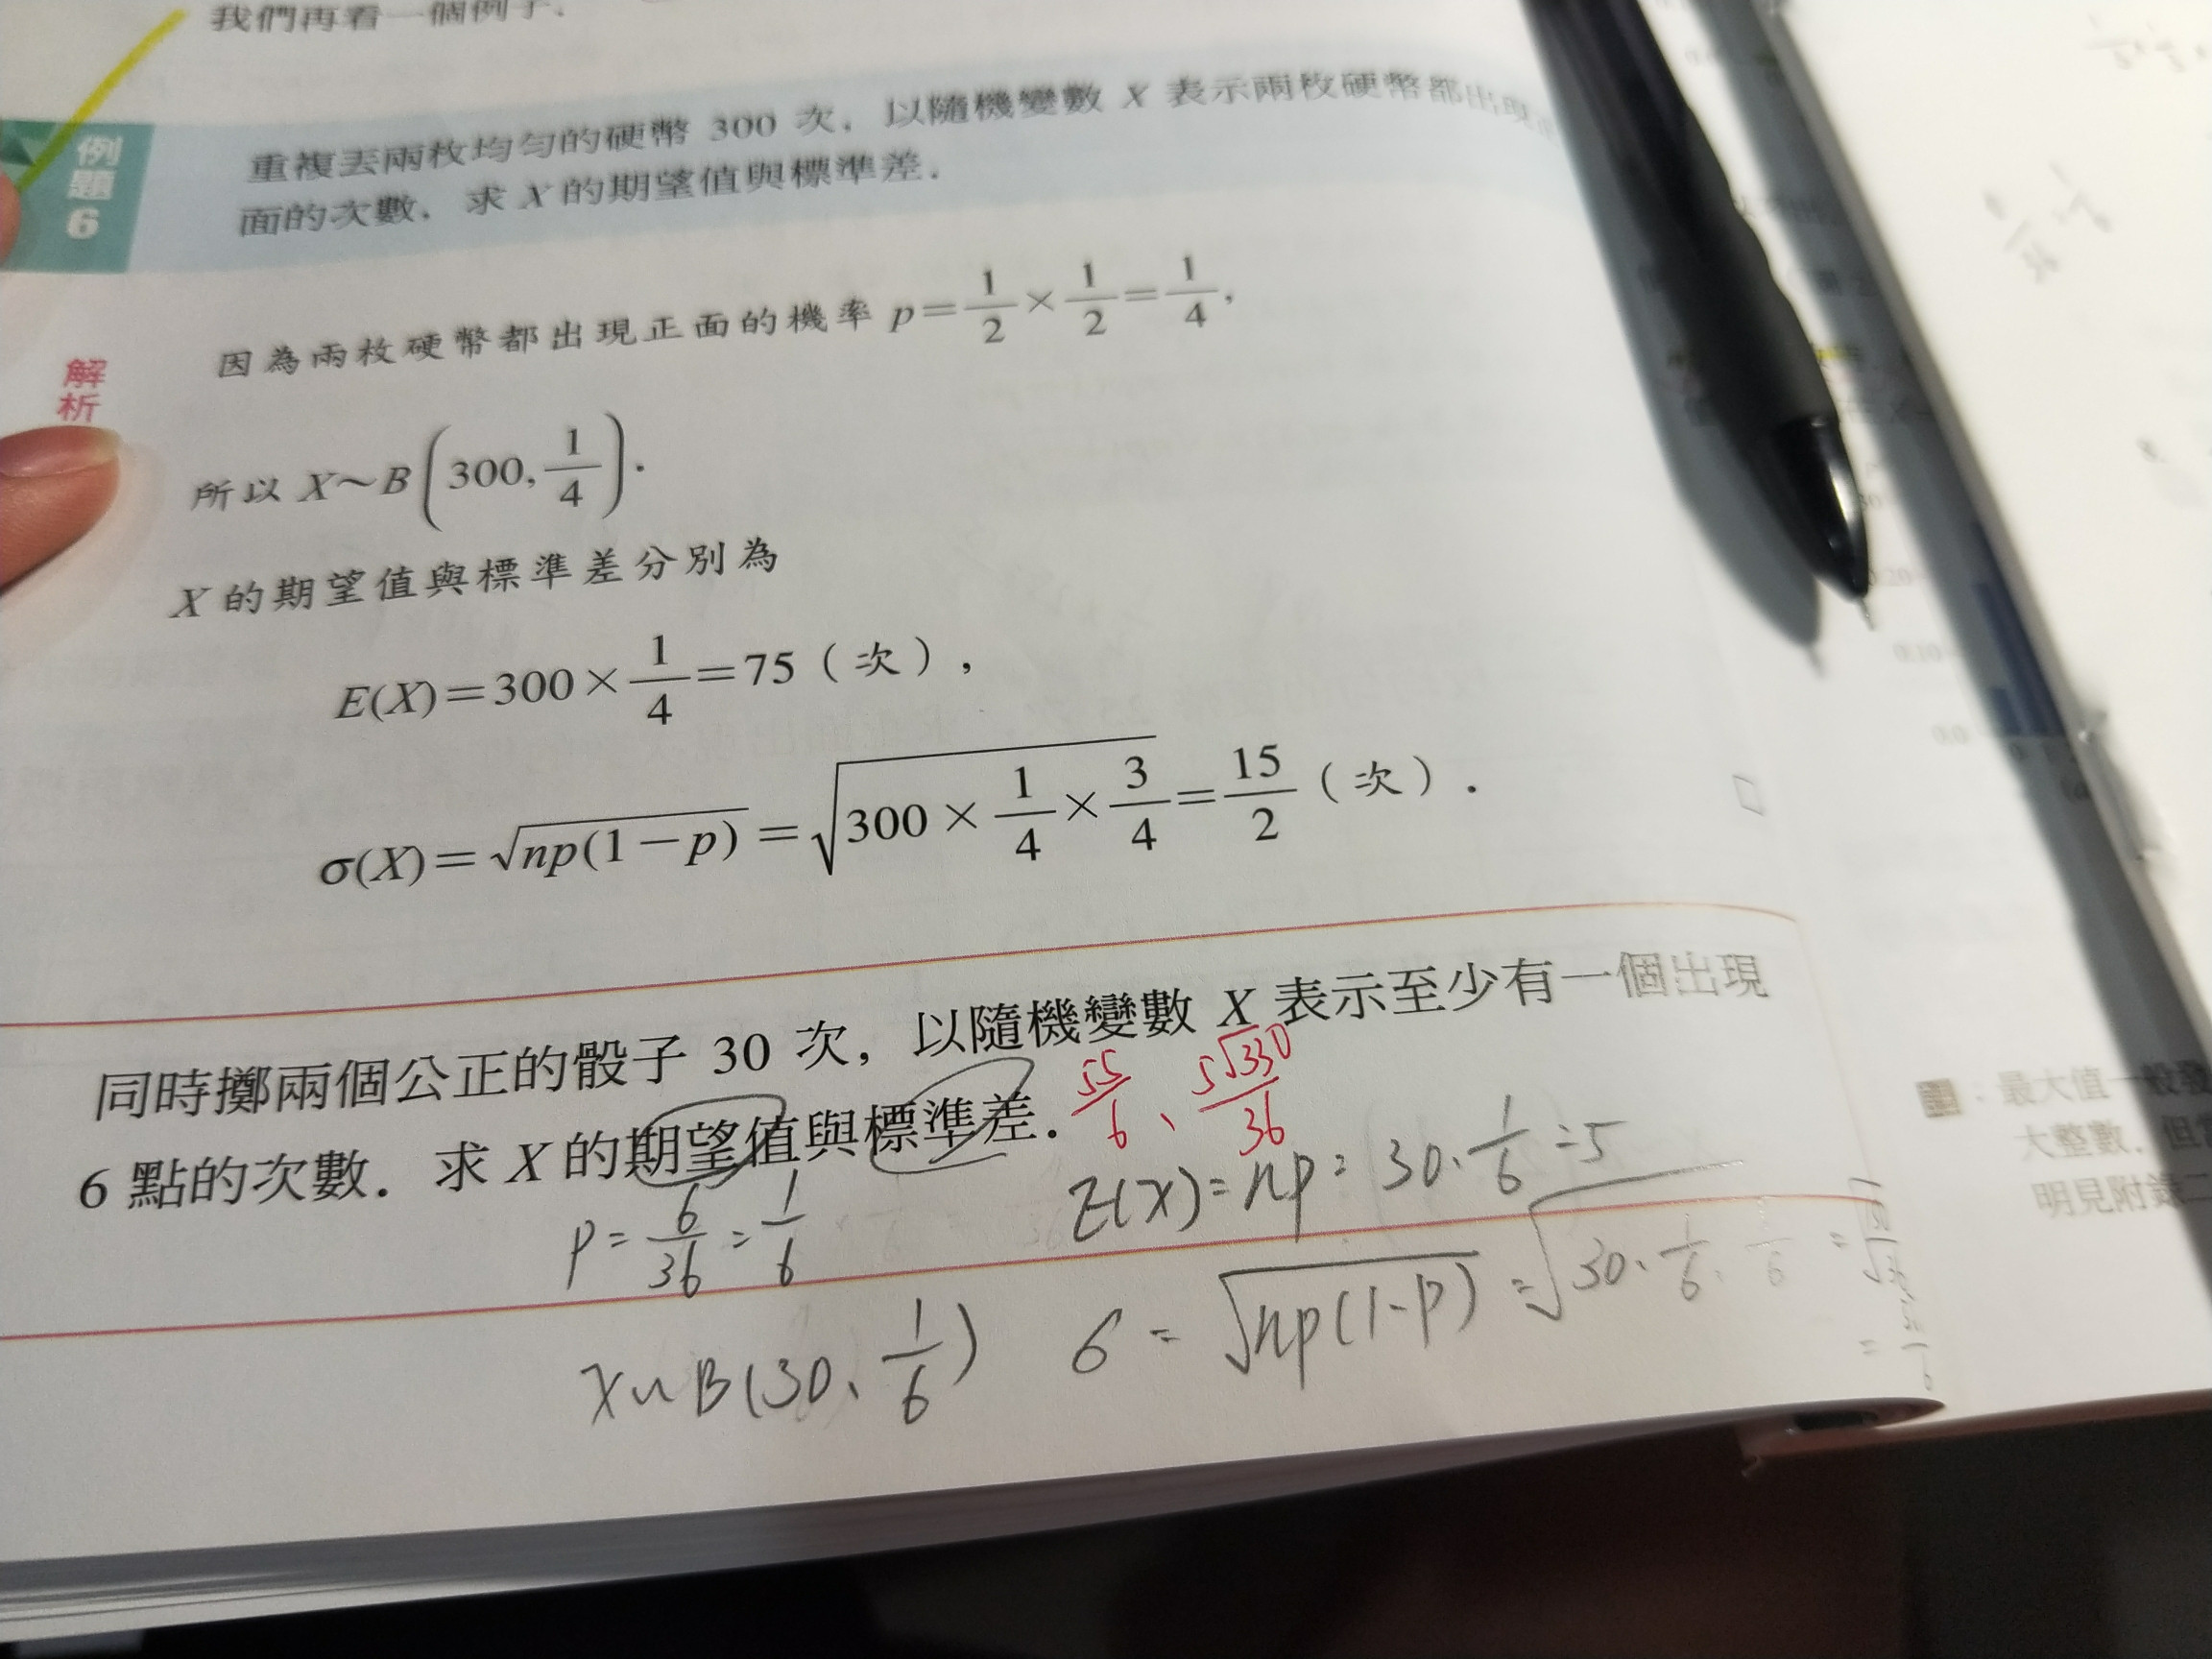 我們再看一個例子.
例題6
重複丟兩枚均勻的硬幣 300 次，以隨機變數 X 表示兩枚硬幣都出現
面的次數．求 X 的期望值與標準差．
解析
因為兩枚硬幣都出現正面的機率 p=1/2×1/2=1/4,
所以 X~B(300, 1/4).
X 的期望值與標準差分別為
E(X)=300×1/4=75（次），
σ(X)=√(np(1-p))=√(300×1/4×3/4)=15/2（次）．
同時擲兩個公正的骰子 30 次，以隨機變數 X 表示至少有一個出現
6 點的次數．求 X 的期望值與標準差．
55/6、5√330/36
E(X)=np=30·1/6=5
p=6/36=1/6
X~B(30、1/6)
6=√(np(1-p))=√(30·1/6·
：最大值一般發
大整數．但
明見附錄二
0.0